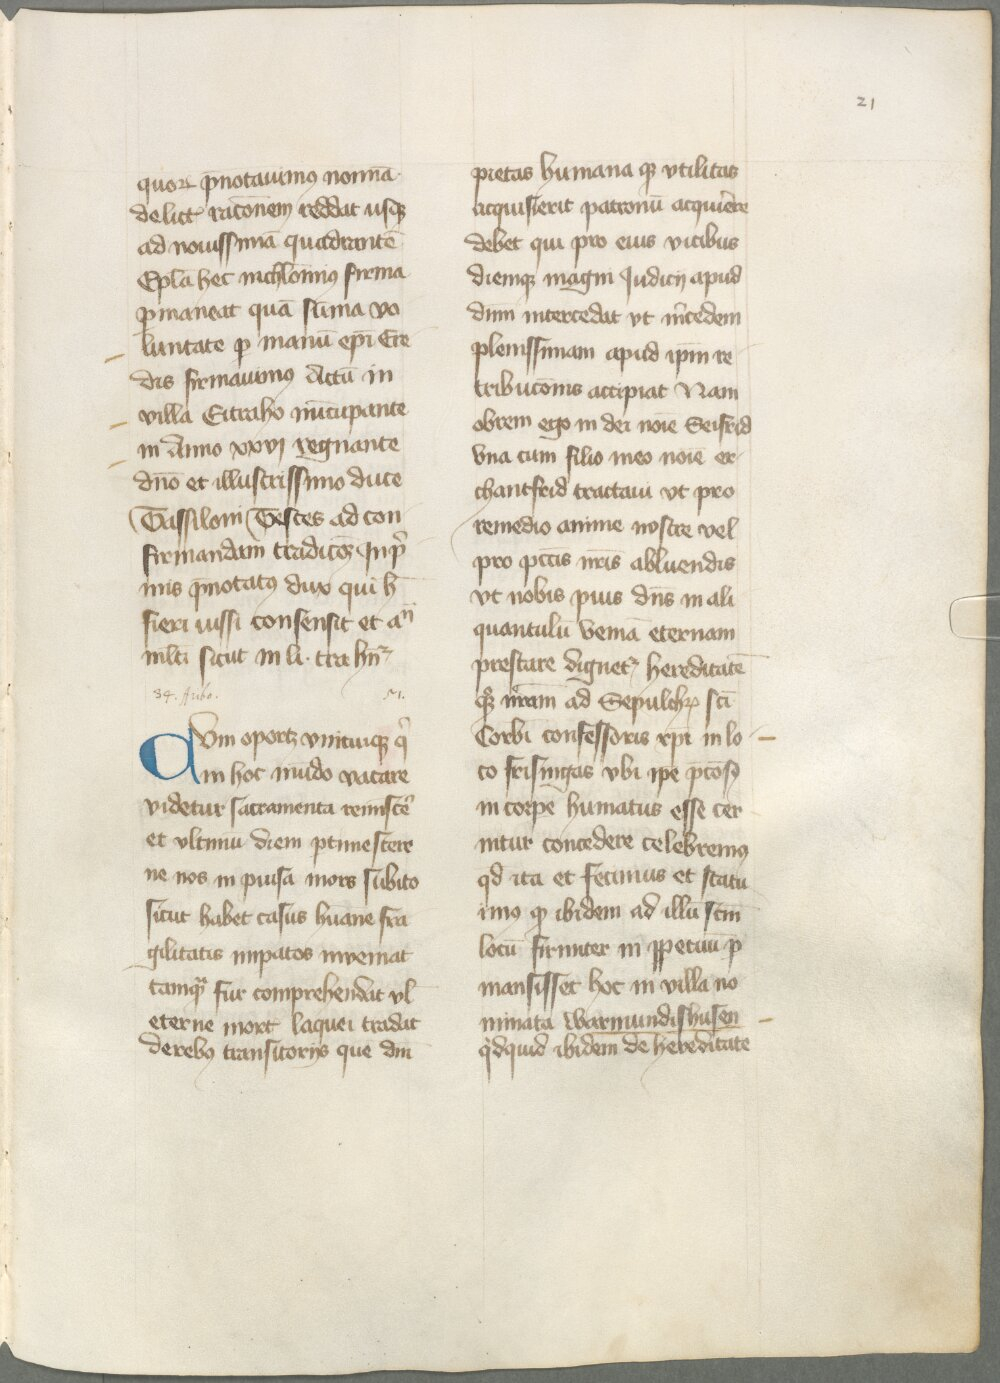 21
quoꝝ p̄notauimus nomina
delicti rac̄onem reddat usqꝫ
ad nouissimū quadrantē
Ep̄la hec nichilominus firma
ꝑmaneat quā sūma vo
luntate ꝑ manū ep̄i Ere
dis firmauimus Actū in
villa Eitraho nūcupante
in Anno xxvj regnante
dn̄o et illustrissimo duce
Tassiloni Testes ad con
firmandam tradic̄oꝫ Inp͛
mis p̄notatus dux qui h̄
fieri iussi consensit et
ml̄ti sicut in li. tra
34. Aribo.
Cum oportꝫ vnicuiqꝫ q͛
in hoc mūdo vacare
videtur sacramenta reminscē
et vltimū diem ꝑtimescere
ne nos in puisa mors subito
sicut habet casus hūane fra
gilitatis impatos inveniat
tamqꝫ fur comprehendat vl̄
eterne mort laquei tradat
de rebus transitorijs que dm̄
pietas humana qꝫ vtilitas
acquisierit patronū acquirere
debet qui pro eius vicibus
diemqꝫ magni Judicij apud
dn̄m intercedat vt m͛cedem
plenissimam apud ip̄m re
tribuc̄onis accipiat Nam
obrem ego in dei noīe Seifrid
vna cum filio meo noīe er
chantfrid tractaui vt pro
remedio anime nostre vel
pro pctīs nr̄is abluendis
vt nobis pius dn̄s in ali
quantulū veniā eternam
prestare dignetᷣ hereditatē
qꝫ nr̄am ad Sepulchꝝ sc̄i
Corbi confessoris xp̄i in lo
co frisingas vbi ip̄e p̄cōsꝰ
in corpe humatus esse cer
nitur concedere celebremus
qd̄ ita et fecimus et statu
imus ꝑ ibidem ad illū sc̄m
locū firmiter in ꝑpetuū ꝑ
mansisset hoc in villa no
minata Warmundishusen
qͥdquid ibidem de hereditate